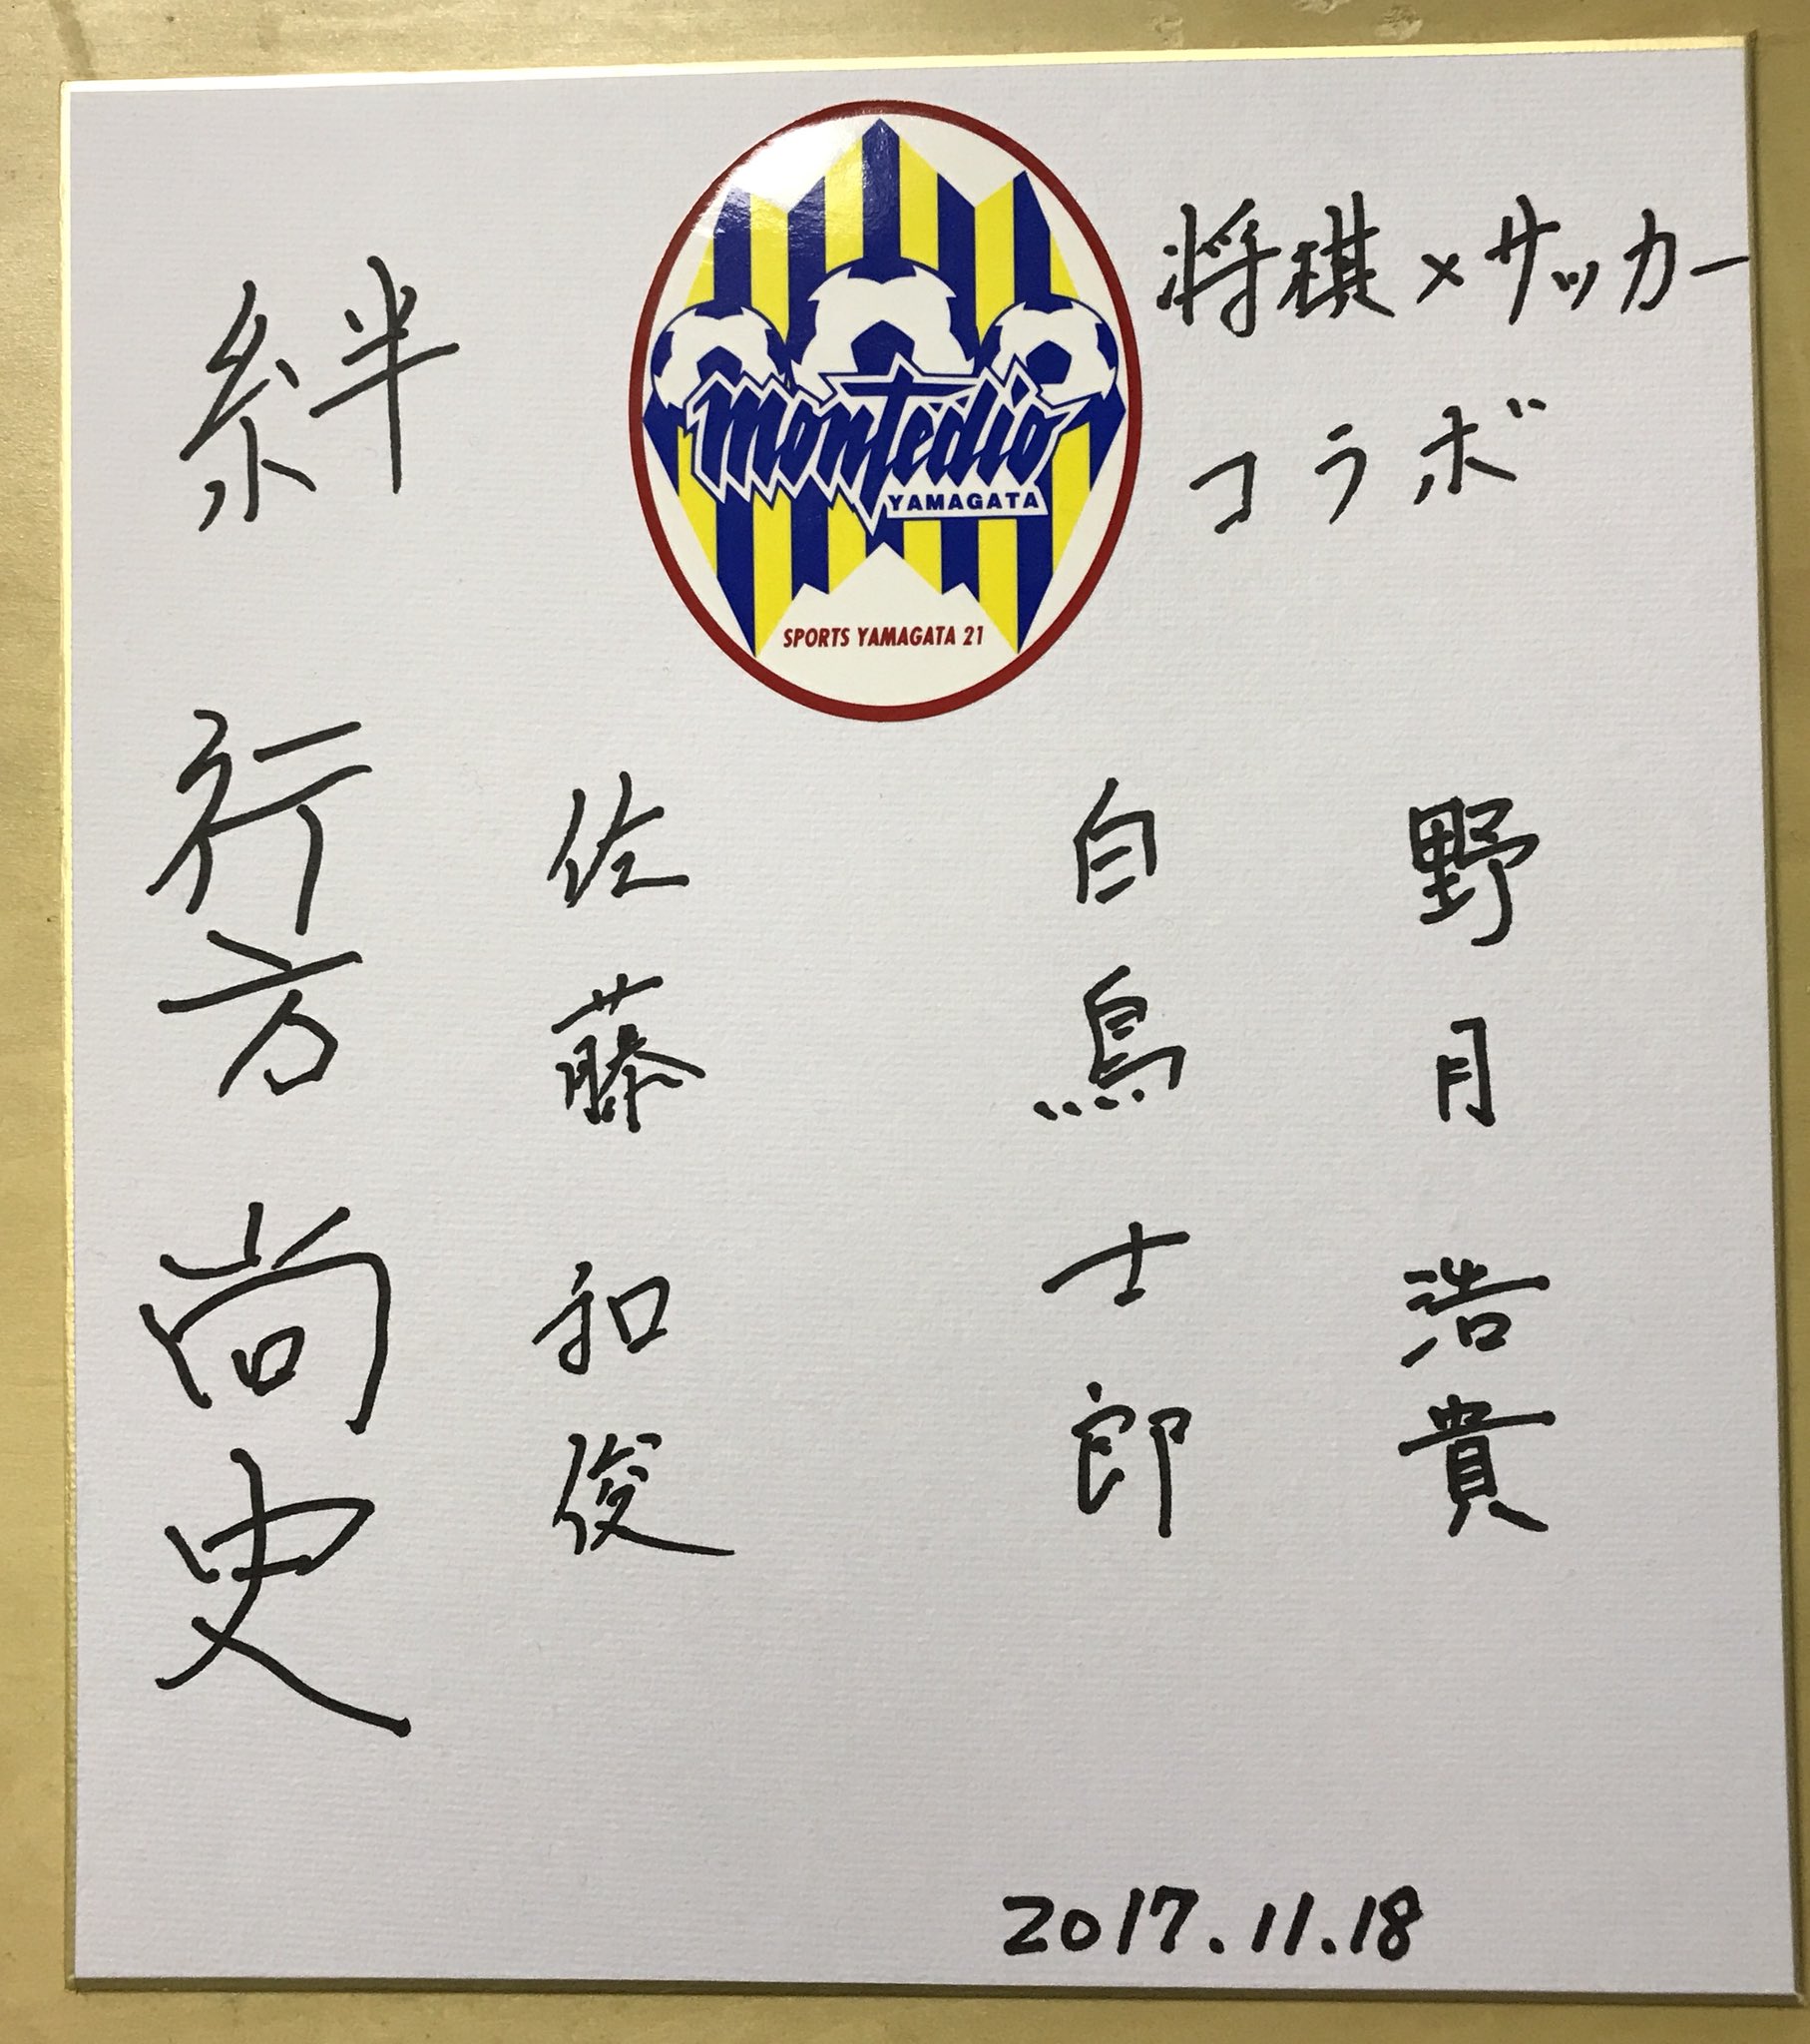 将棋×サッカー
コラボ
montedio
YAMAGATA
SPORTS YAMAGATA 21
絆
野月浩貴
白鳥士郎
佐藤和俊
行方尚史
2017.11.18